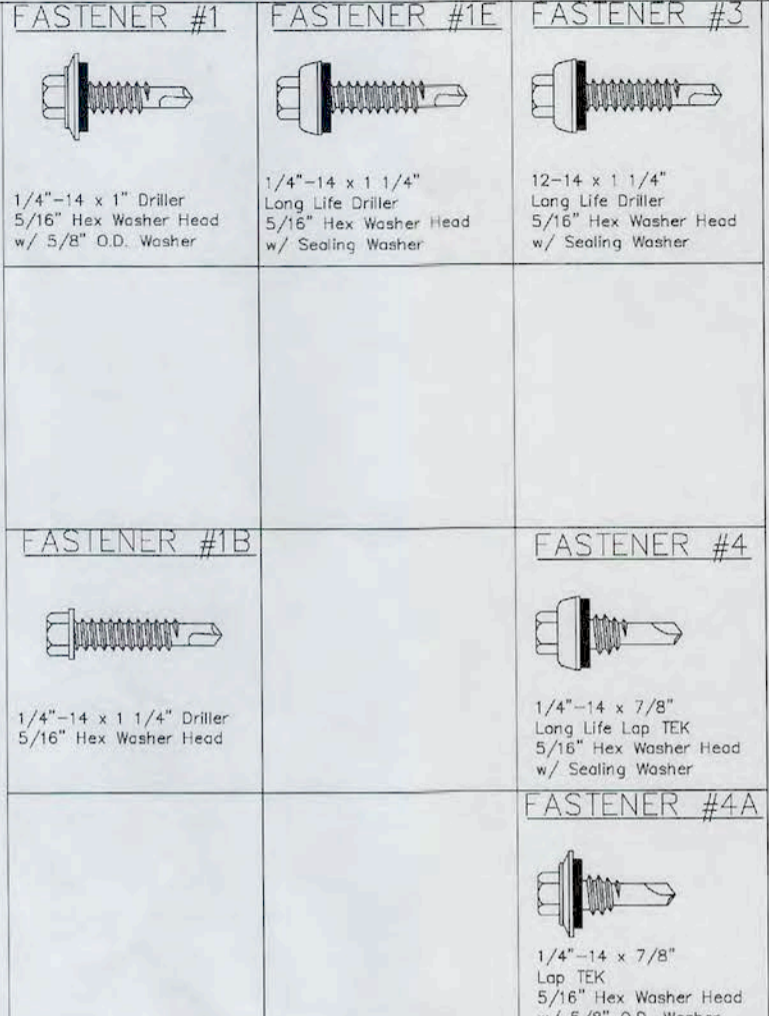 FASTENER #1
1/4"-14 x 1" Driller
5/16" Hex Washer Head
w/ 5/8" O.D. Washer
FASTENER #1E
1/4"-14 x 1 1/4"
Long Life Driller
5/16" Hex Washer Head
w/ Sealing Washer
FASTENER #3
12-14 x 1 1/4"
Long Life Driller
5/16" Hex Washer Head
w/ Sealing Washer
FASTENER #1B
1/4"-14 x 1 1/4" Driller
5/16" Hex Washer Head
FASTENER #4
1/4"-14 x 7/8"
Long Life Lap TEK
5/16" Hex Washer Head
w/ Sealing Washer
FASTENER #4A
1/4"-14 x 7/8"
Lap TEK
5/16" Hex Washer Head
w/ 5/8" O.D. Washer